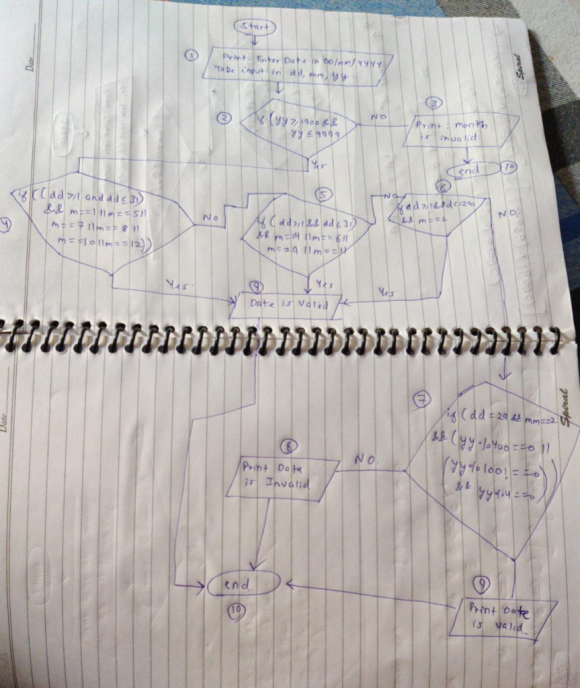 Start
①
Print: Enter Date in DD/mm/yyyy
Take input in dd, mm, yy
②
if (yy ≥ 1900 &&
yy ≤ 9999
NO
③
Print: month
is invalid
end
⑩
Yes
④
if ((dd ≥ 1 and dd ≤ 31)
&& m==1 || m==5 ||
m==7 || m==8 ||
m==10 || m==12))
NO
⑤
if (dd ≥ 1 && dd ≤ 31
&& m==4 || m==6 ||
m==9 || m==11
No
⑥
&& m==2
NO
Yes
Yes
Yes
⑨
Date is Valid
Date
Spiral
Date
Spiral
⑦
if (dd=29 && mm==2
&& (yy%400==0 ||
(yy%100!==0
&& yy%4==0))
NO
⑧
Print Date
is Invalid
end
⑩
⑨
Print Date
is valid